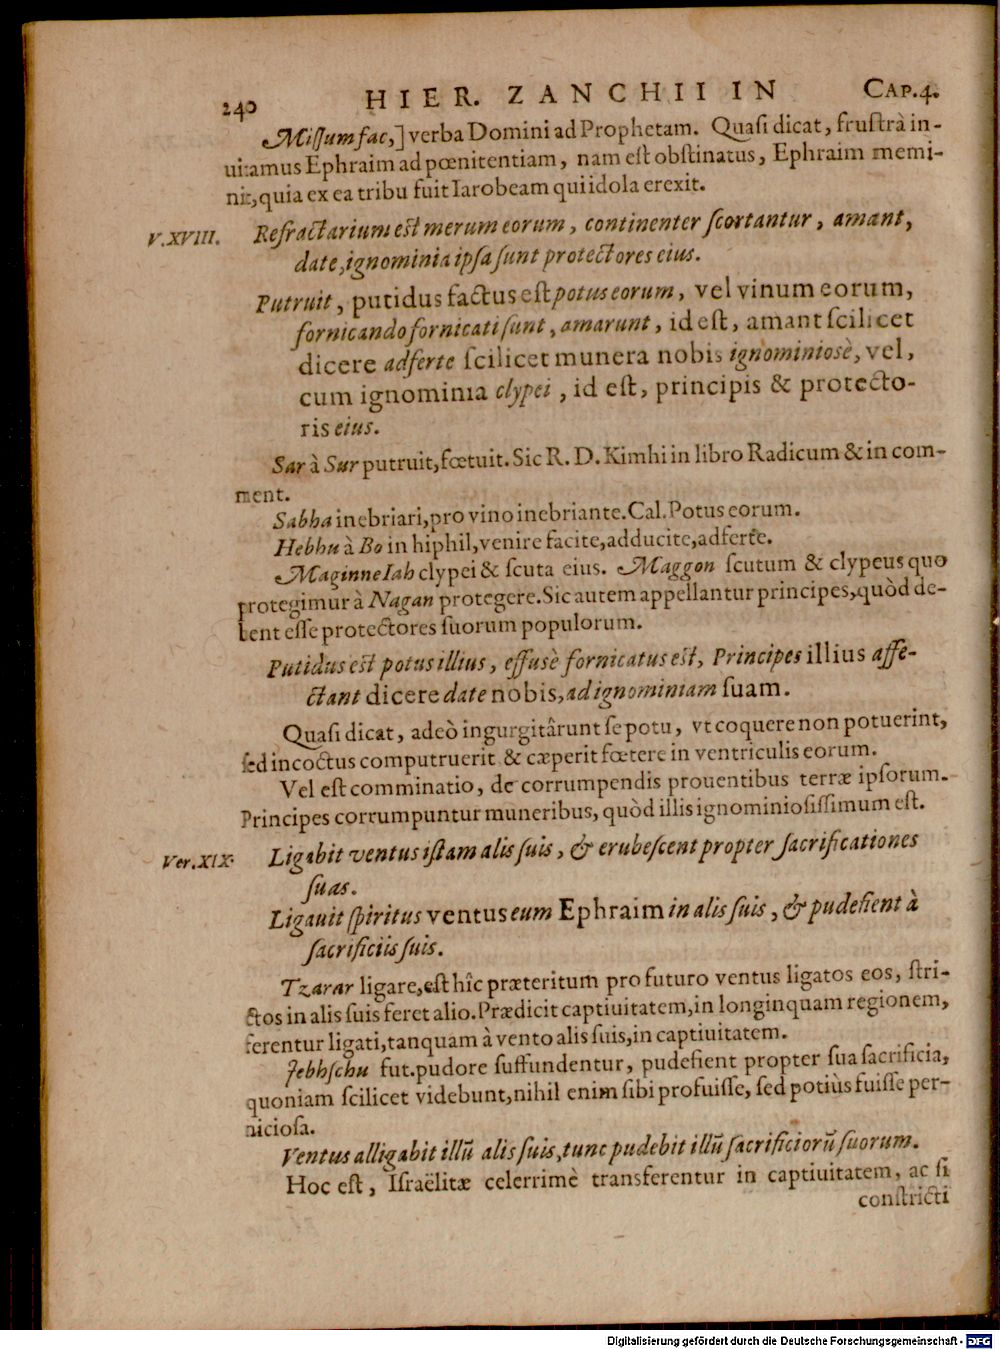 240 HIER. ZANCHII IN CAP.4.
Miſſum fac,] verba Domini ad Prophetam. Quaſi dicat, fruſtrà in-
uitamus Ephraim ad pœnitentiam, nam eſt obſtinatus, Ephraim memi-
nit, quia ex ea tribu fuit Iarobeam qui idola erexit.
V.XVIII. Refractarium eſt merum eorum, continenter ſcortantur, amant,
date, ignominia ipſa ſunt protectores eius.
Putruit, putidus factus eſt potus eorum, vel vinum eorum,
fornicando fornicati ſunt, amarunt, id eſt, amant ſcilicet
dicere adferte ſcilicet munera nobis ignominiosè, vel,
cum ignominia clypei, id eſt, principis & protecto-
ris eius.
Sar à Sur putruit, fœtuit. Sic R. D. Kimhi in libro Radicum & in com-
ment.
Sabha inebriari, pro vino inebriante. Cal. Potus eorum.
Hebhu à Bo in hiphil, venire facite, adducite, adferte.
Maginne Iah clypei & ſcuta eius. Maggon ſcutum & clypeus quo
protegimur à Nagan protegere. Sic autem appellantur principes, quòd de-
bent eſſe protectores ſuorum populorum.
Putidus eſt potus illius, effusè fornicatus eſt, Principes illius affe-
ctant dicere date nobis, ad ignominiam ſuam.
Quaſi dicat, adeò ingurgitârunt ſe potu, vt coquere non potuerint,
ſed incoctus computruerit & cæperit fœtere in ventriculis eorum.
Vel eſt comminatio, de corrumpendis prouentibus terræ ipſorum.
Principes corrumpuntur muneribus, quòd illis ignominioſiſſimum eſt.
Ver.XIX. Ligabit ventus iſtam alis ſuis, & erubeſcent propter ſacrificationes
ſuas.
Ligauit ſpiritus ventus eum Ephraim in alis ſuis, & pudefient à
ſacrificiis ſuis.
Tzarar ligare, eſt hîc præteritum pro futuro ventus ligatos eos, ſtri-
ctos in alis ſuis feret alio. Prædicit captiuitatem, in longinquam regionem,
ferentur ligati, tanquam à vento alis ſuis, in captiuitatem.
Jebhſchu fut. pudore ſuffundentur, pudefient propter ſua ſacrificia,
quoniam ſcilicet videbunt, nihil enim ſibi profuiſſe, ſed potiùs fuiſſe per-
niciosa.
Ventus alligabit illū alis ſuis, tunc pudebit illū ſacrificiorū ſuorum.
Hoc eſt, Iſraëlitæ celerrimè transferentur in captiuitatem, ac ſi
conſtricti
Digitalisierung gefördert durch die Deutsche Forschungsgemeinschaft - DFG